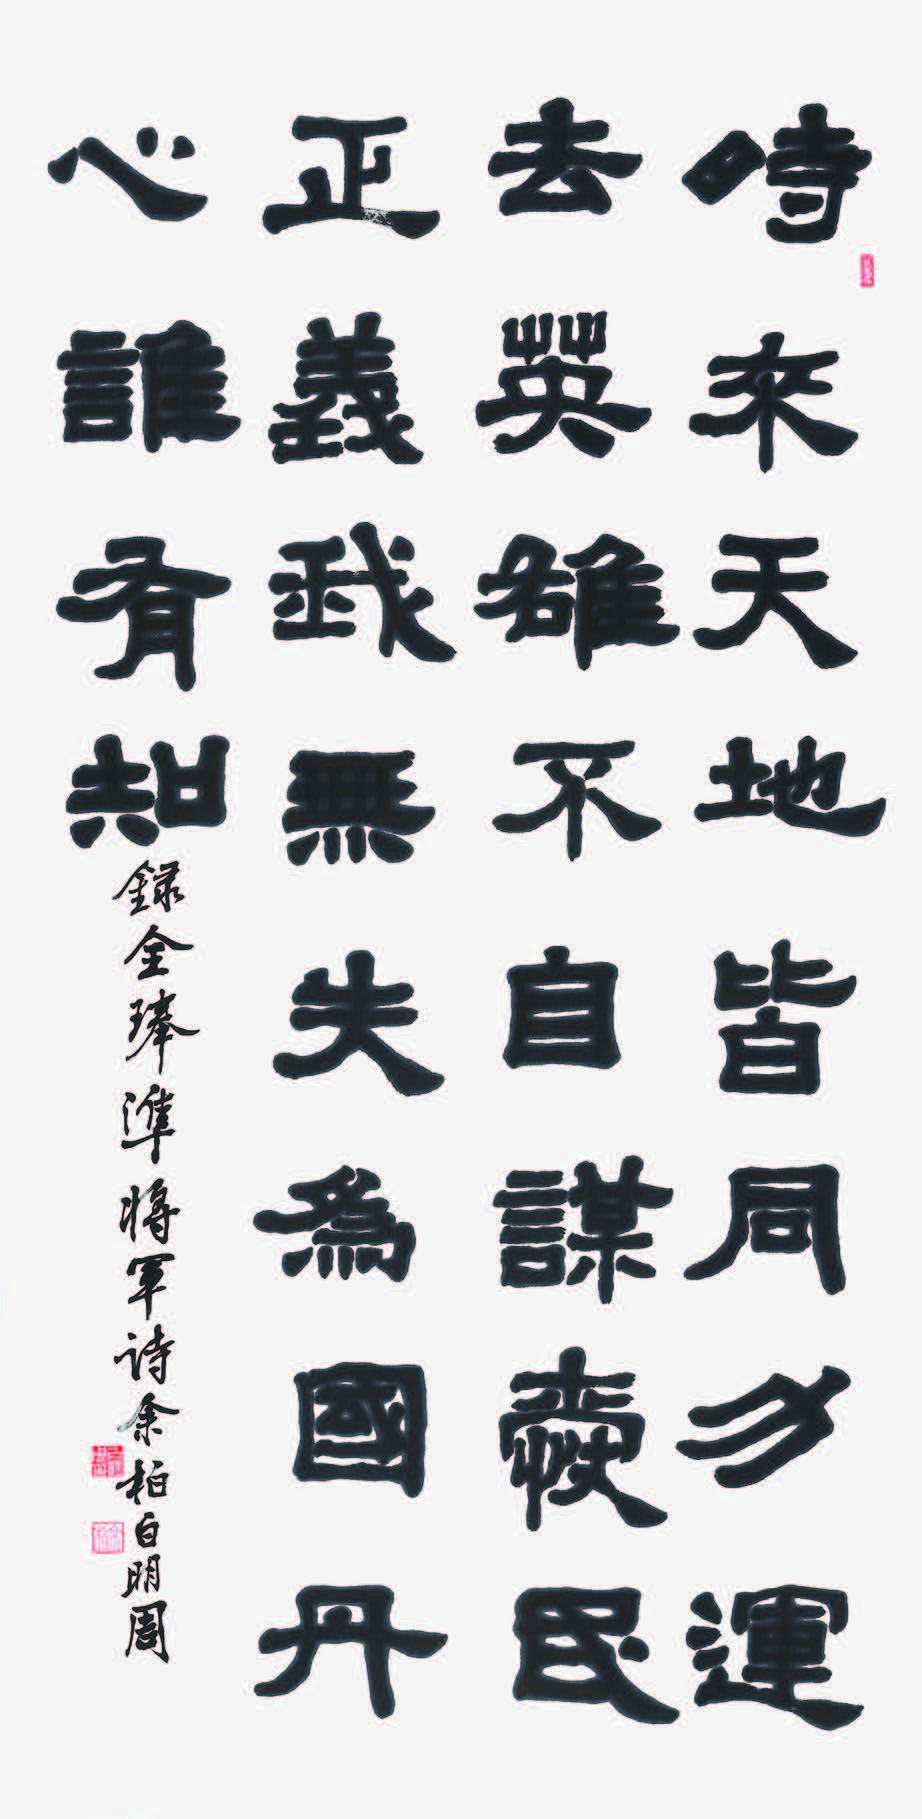 時來天地皆同力運
去英雄不自謀愛民
正義我無失為國丹
心誰有知
録全琫準將軍诗余柏白明周